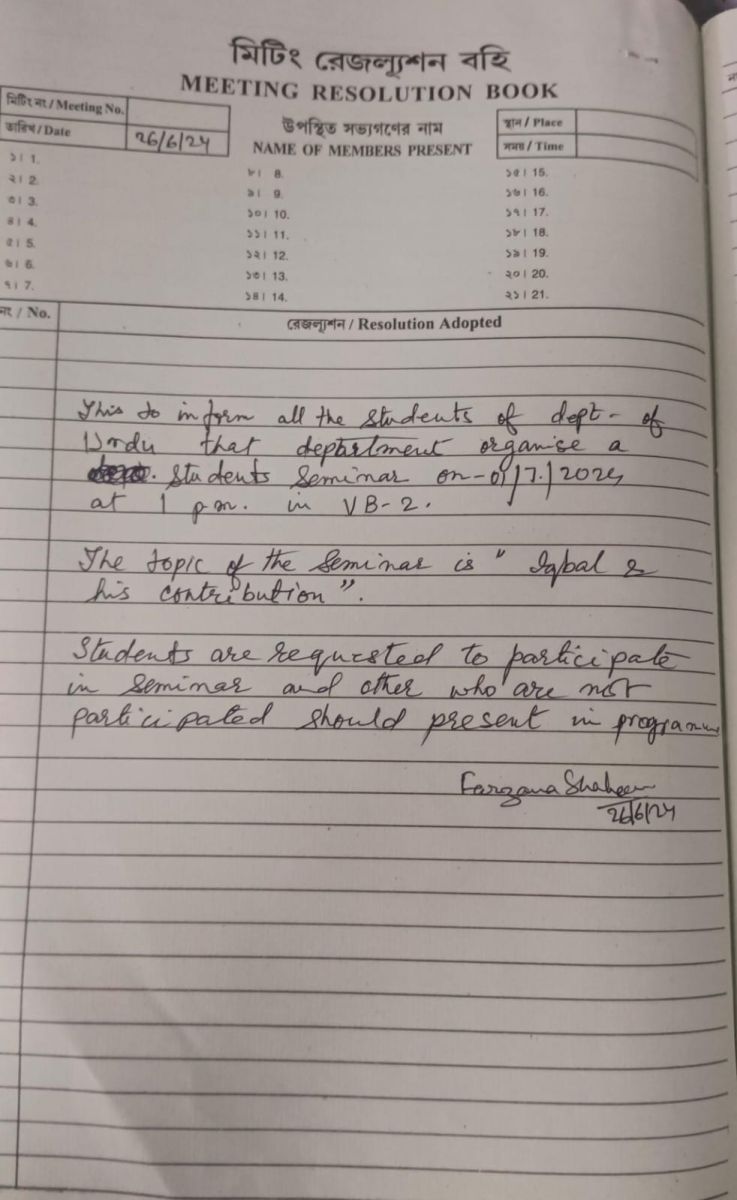 মিটিং রেজল্যূশন বহি
MEETING RESOLUTION BOOK
মিটিং নং / Meeting No.
তারিখ / Date 26/6/24
উপস্থিত সভ্যগণের নাম
NAME OF MEMBERS PRESENT
স্থান / Place
সময় / Time
১। 1.
২। 2.
৩। 3.
৪। 4.
৫। 5.
৬। 6.
৭। 7.
৮। 8.
৯। 9.
১০। 10.
১১। 11.
১২। 12.
১৩। 13.
১৪। 14.
১৫। 15.
১৬। 16.
১৭। 17.
১৮। 18.
১৯। 19.
২০। 20.
২১। 21.
নং / No.
রেজল্যূশন / Resolution Adopted
This to inform all the students of dept- of
Urdu that department organise a
students Seminar on - 01/7/2024
at 1 p.m. in VB-2.
The topic of the Seminar is " Iqbal &
his contribution".
Students are requested to participate
in Seminar and other who are not
participated should present in programme
Farzana Shaheen
26/6/24